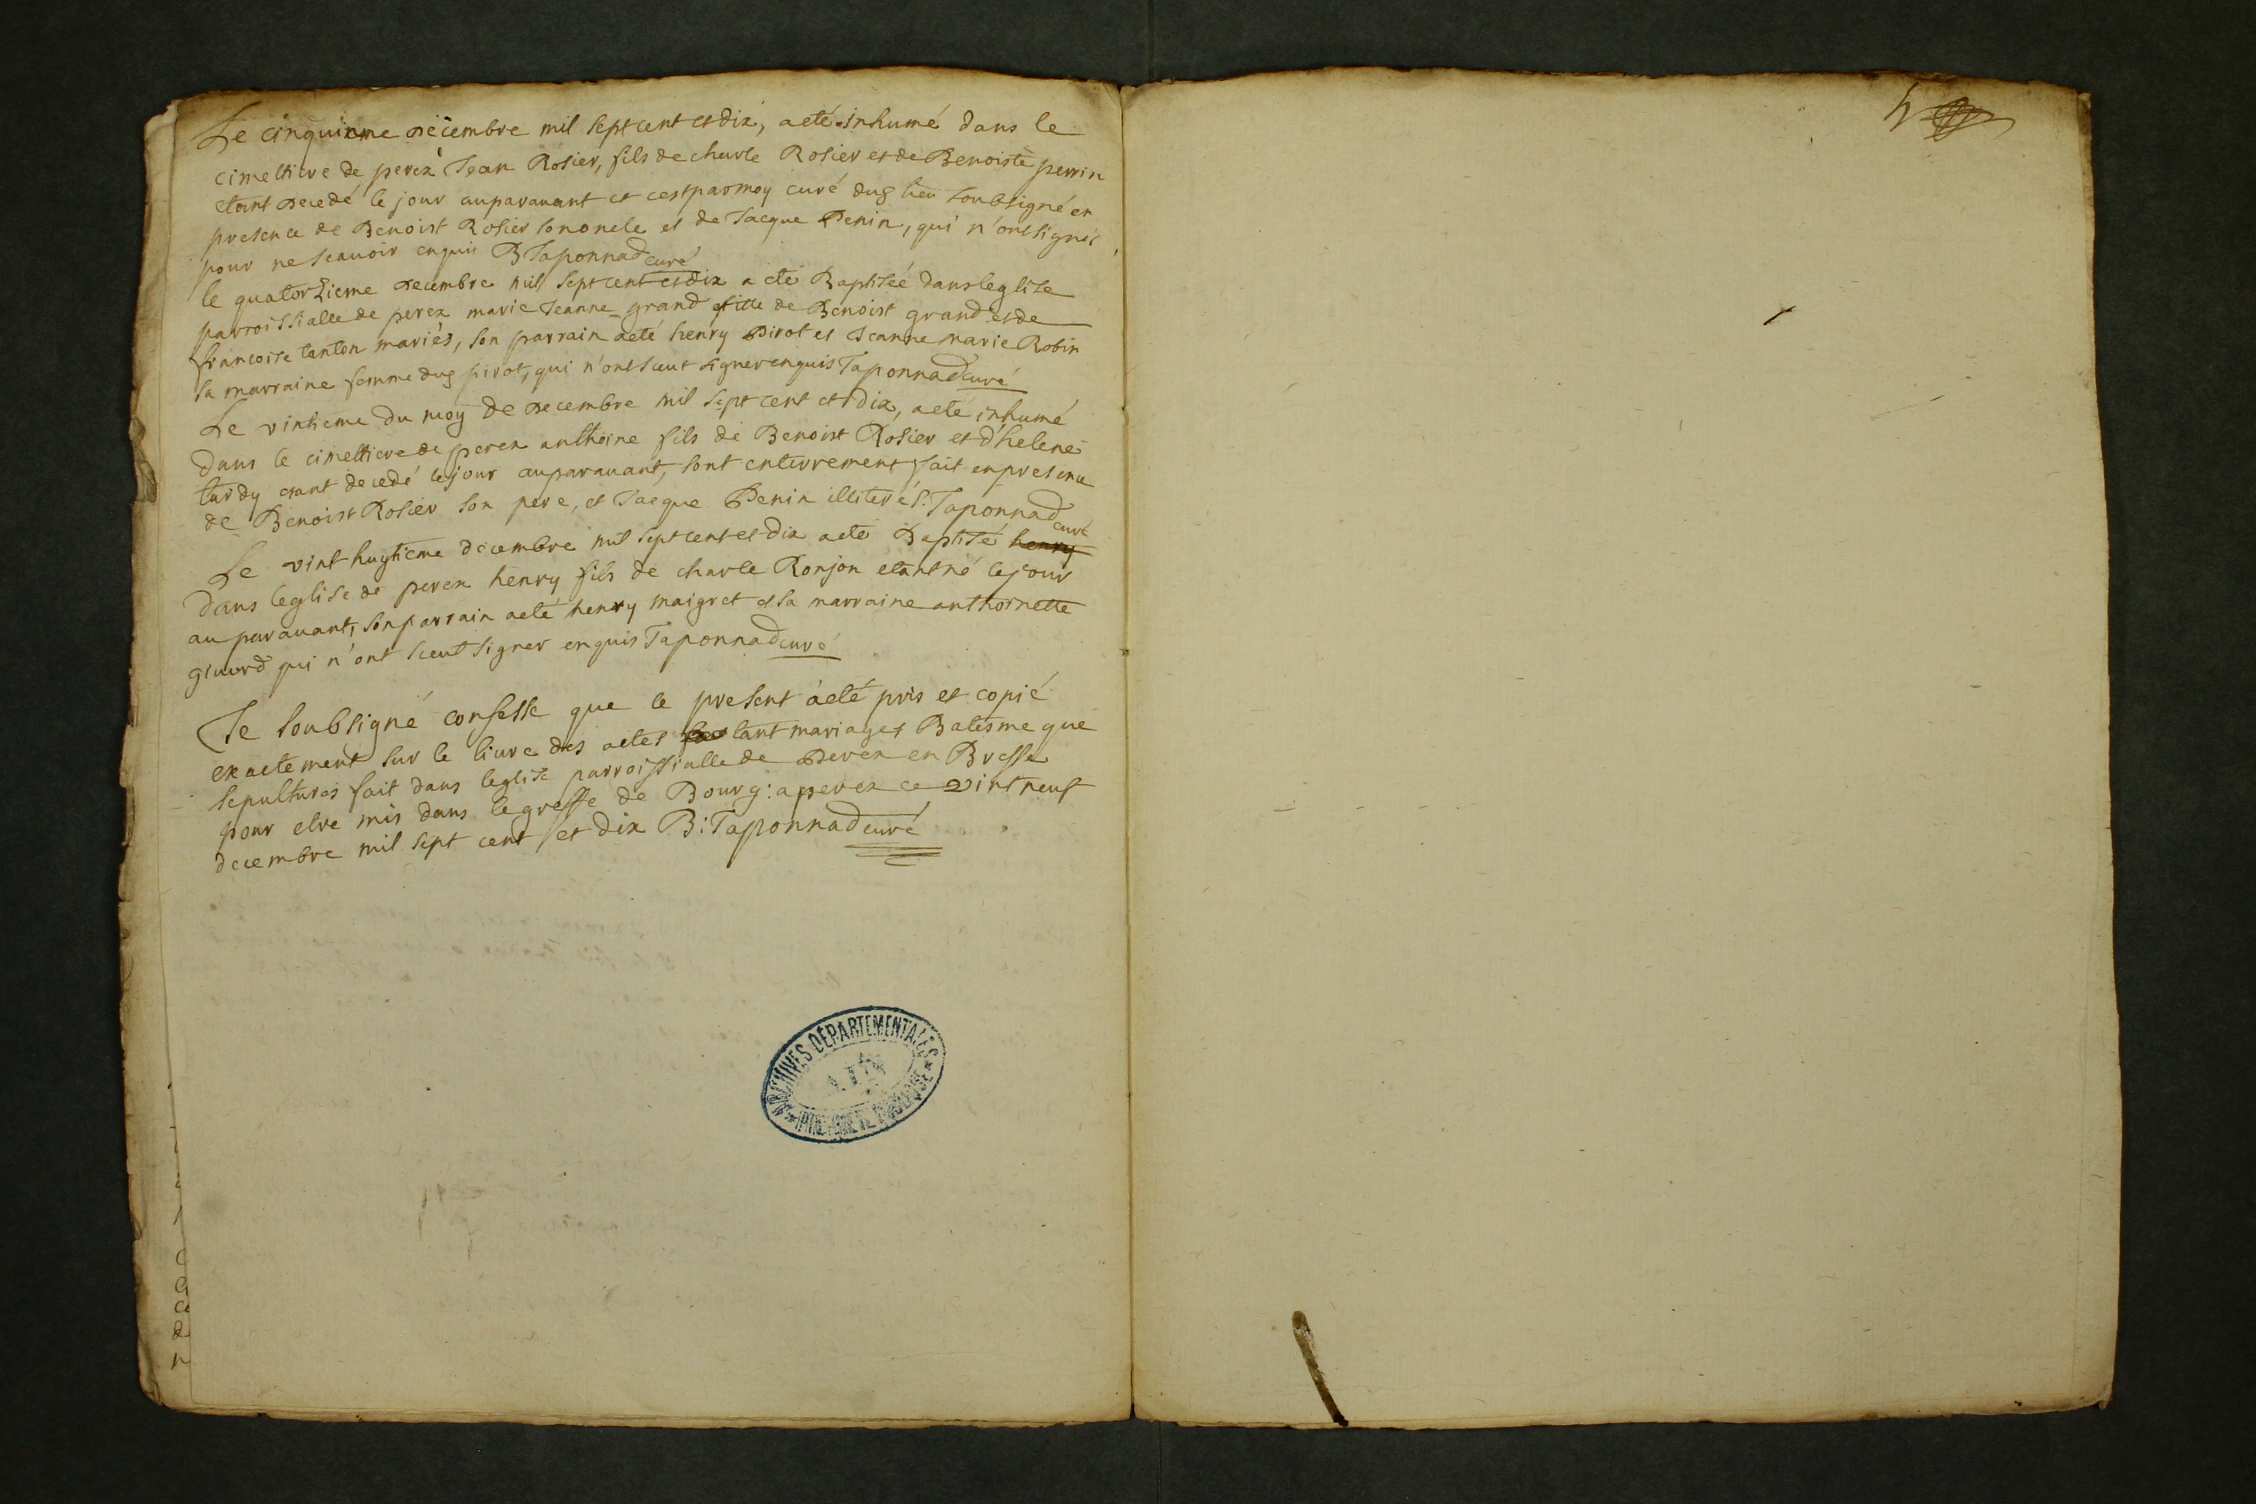 Le cinquieme decembre mil sept cent et dix, a eté inhumé dans le
cimettiere de perex Jean Rosier, fils de charle Rosier et de Benoiste perrin
etant decedé le jour auparavant et cest par moy curé dud lieu soubsigné en
presence de Benoist Rosier son oncle et de Jacque Penin, qui n'ont signés
pour ne scavoir enquis B Taponnad curé
le quatorzieme decembre mil sept cent et dix a eté Baptisée dans leglise
parroissialle de perex marie Jeanne grand fille de Benoist grand et de
francoise tanton mariés, son parrain a eté henry Pirot et Jeanne marie Robin
sa marraine femme dud pirot, qui n'ont sceut signer enquis Taponnad curé
Le vintieme du moy de decembre mil sept cent et dix, a eté inhumé
dans le cimettiere de perex anthoine fils de Benoist Rosier et d'helene
tardy etant decedé le jour auparavant, sont enterrement fait en presence
de Benoist Rosier son pere, et Jacque Penin illiterés: Taponnad curé
Le vint huytieme decembre mil sept cent et dix a eté Baptisé henry
dans leglise de perex henry fils de charle Ronjon etant né le jour
auparavant, son parrain a eté henry maigret et sa marraine anthoinette
qui n'ont sceut signer enquis Taponnad curé
Je soubsigné confesse que le present a eté pris et copié
exactement sur le livre des actes tant mariages Batesme que
sepultures fait dans leglise parroissialle de Perex en Bresse
pour etre mis dans le greffe de Bourg: a perex ce vint neuf
decembre mil sept cent et dix B: Taponnad curé
ARCHIVES DÉPARTEMENTALES
AIN